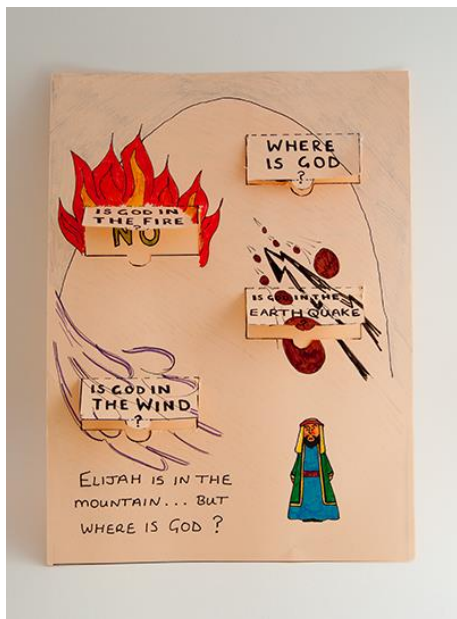 WHERE
IS GOD
?
IS GOD IN
THE FIRE
?
NO
IS GOD IN THE
EARTHQUAKE
IS GOD IN
THE WIND
?
ELIJAH IS IN THE
MOUNTAIN... BUT
WHERE IS GOD ?